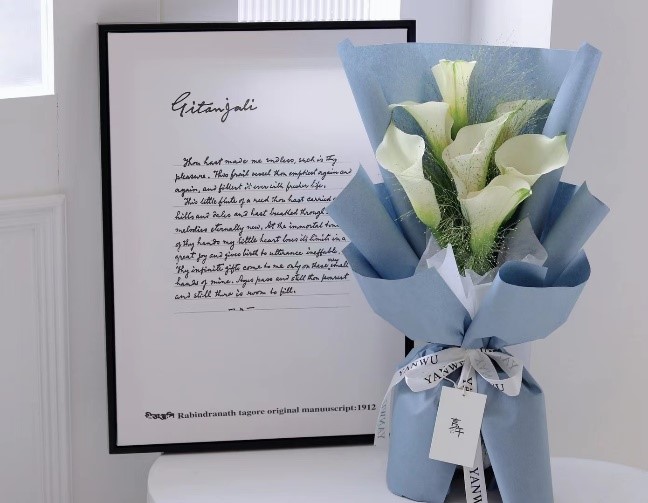 Gitanjali
Thou hast made me endless, such is thy
pleasure. This frail vessel thou emptiest again and
again, and fillest it ever with fresher life.
This little flute of a reed thou hast carried
hills and dales and hast breathed through
melodies eternally new. At the immortal
of thy hands my little heart loses its limits in a
great joy and gives birth to utterance ineffable.
Thy infinite gifts come to me only on these very small
hands of mine. Ages pass and still thou pourest
and still there is room to fill.
গীতাঞ্জলি Rabindranath tagore original manuuscript:1912
YANWU
YANWU
YANWU
YANWU